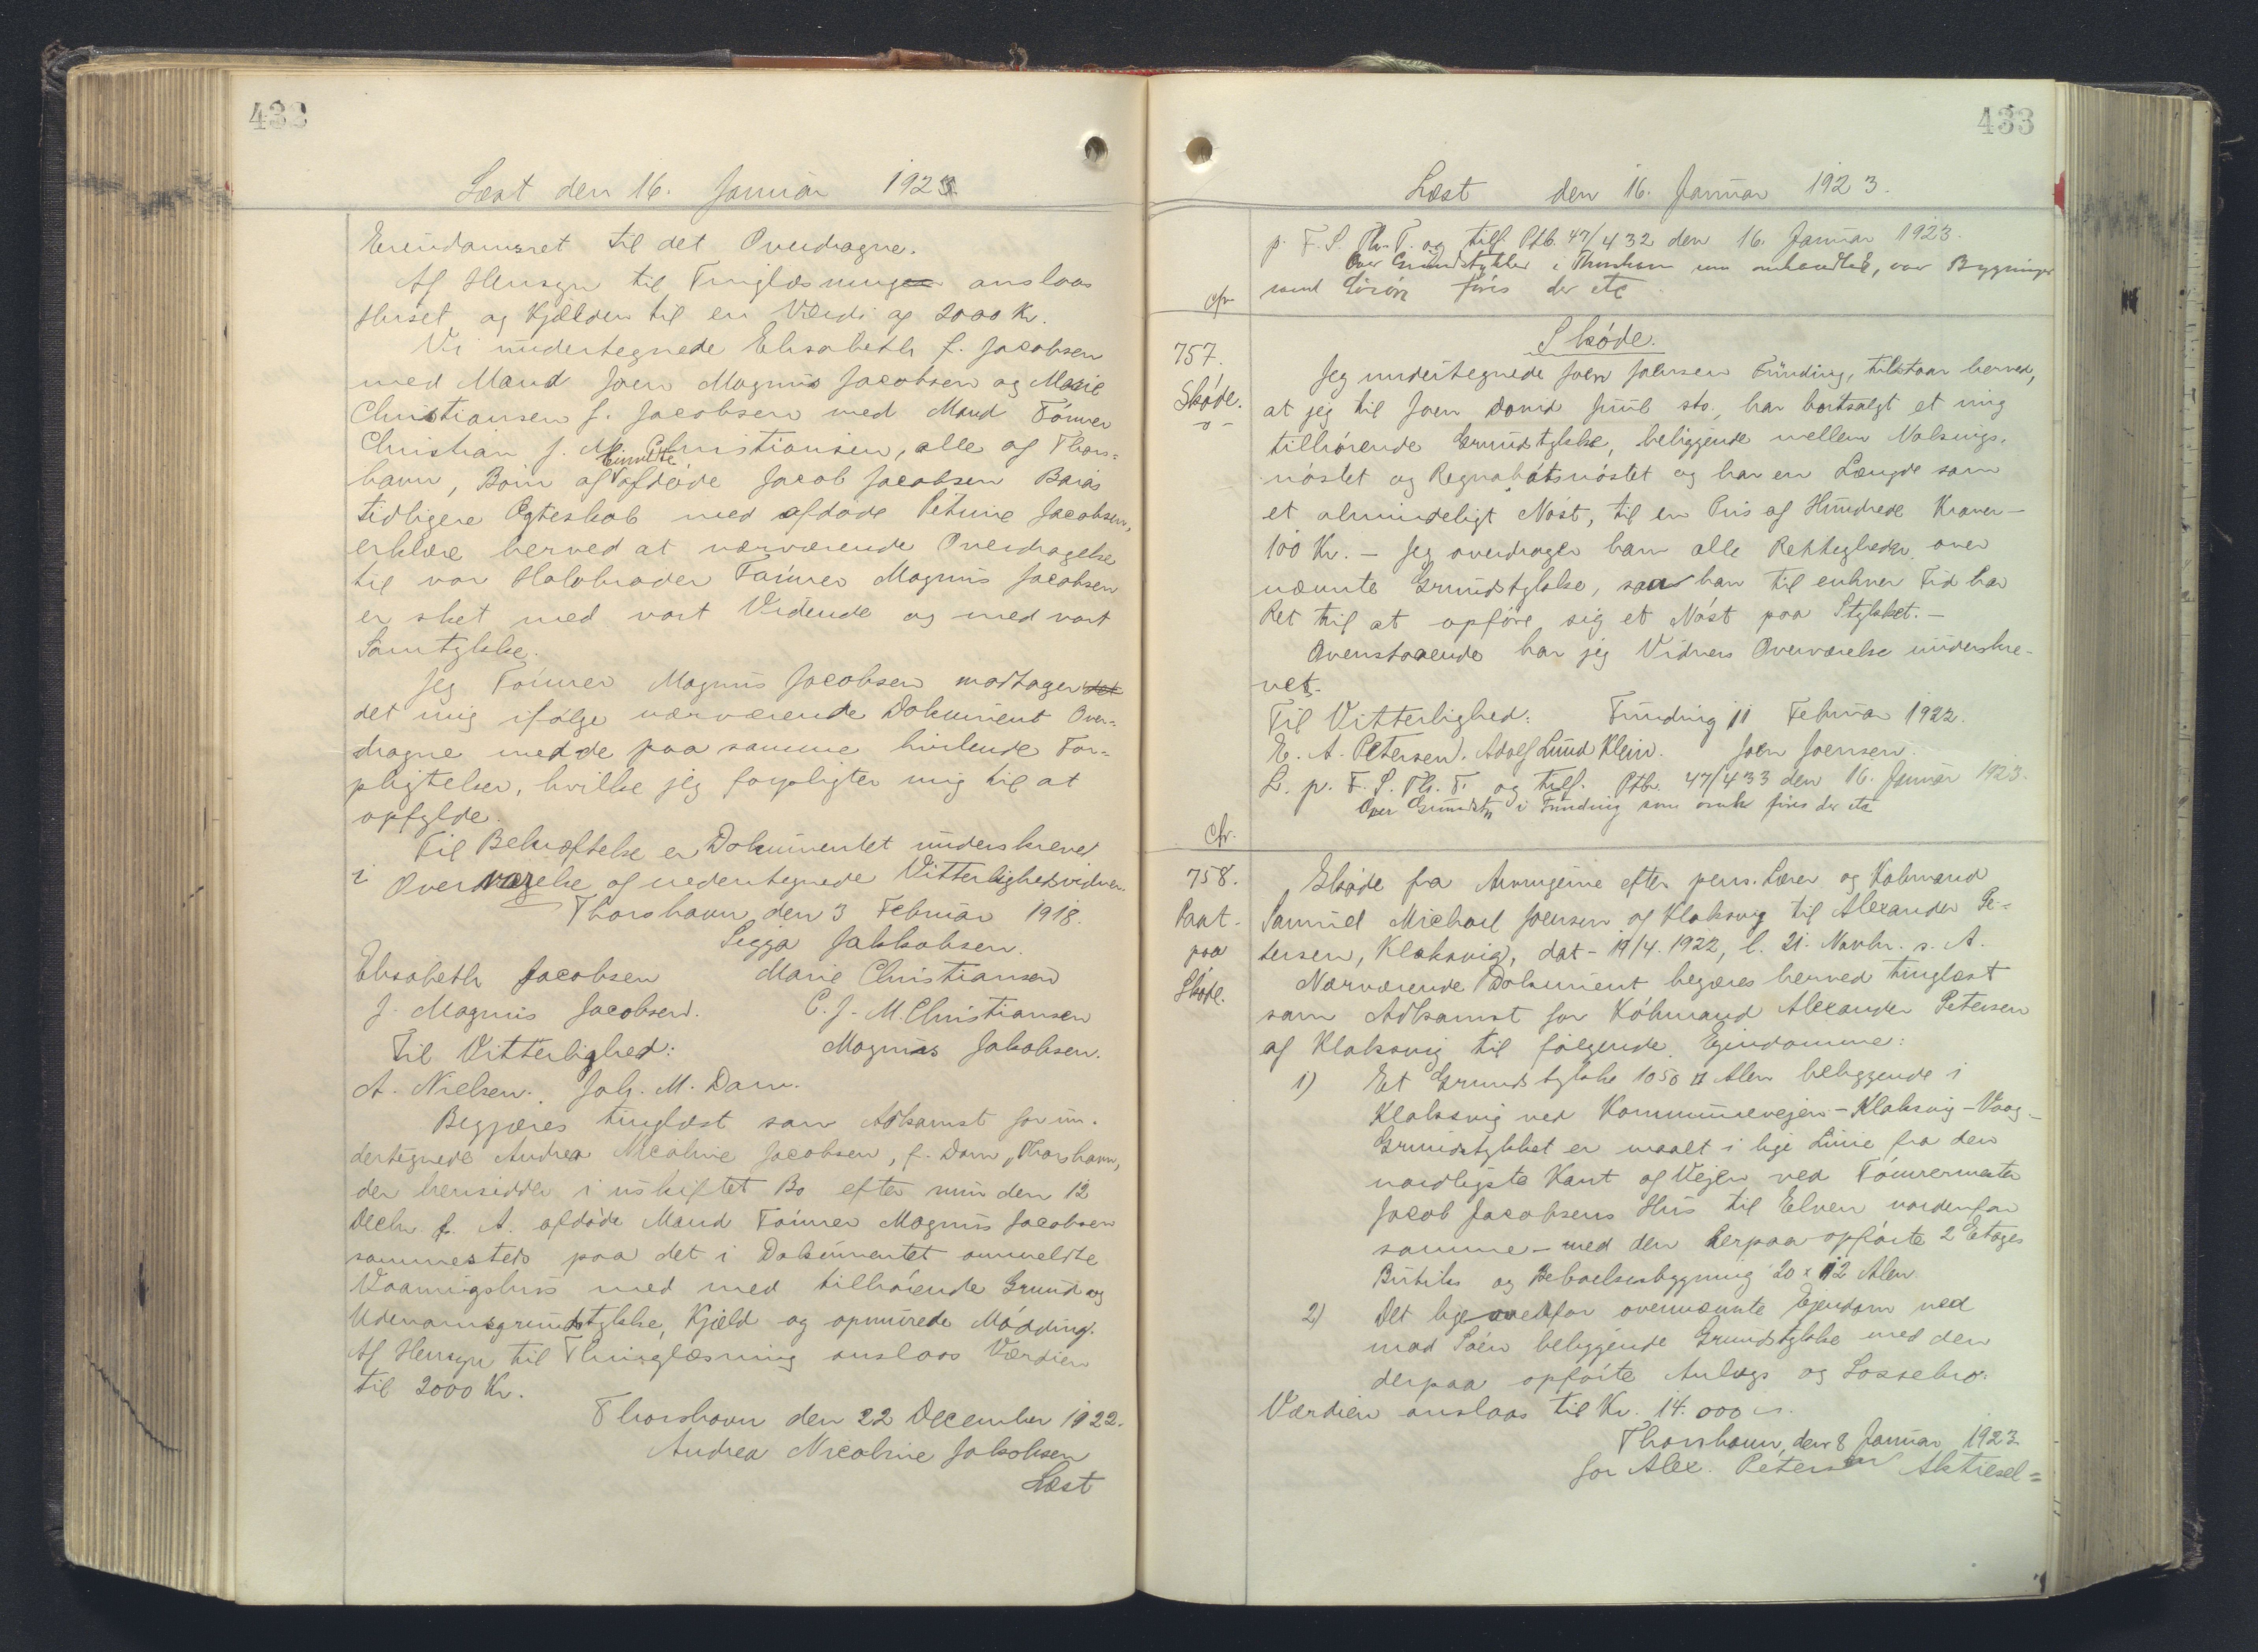 432
Læst den 16. Januar 1923.
Eiendomsret til det Overdragne.
Af Hensyn til Tinglæsningen anslaas
Huset og Kjælder til en Værdi af 2000 Kr.
Vi undertegnede Elisabeth f. Jacobsen
med Mand Joen Magnus Jacobsen og Marie
Christiansen f. Jacobsen med Mand Tømrer
Christian J. M. Christiansen, alle af Thors=
havn, Børn af afdøde Jacob Jacobsen
tidligere Ægteskab med afdøde Jacobsen,
erklære herved at nærværende Overdragelse
til vor Halvbroder Tømrer Magnus Jacobsen
er sket med vort Vidende og med vort
Samtykke.
Jeg Tømrer Magnus Jacobsen modtager det
det mig ifølge nærværende Dokument Over=
dragne med de paa samme hvilende For=
pligtelser, hvilke jeg forpligter mig til at
opfylde.
Til Bekræftelse er Dokumentet underskrevet
i Overværelse af nedentegnede Vitterlighedsvidner.
Thorshavn, den 3 Februar 1918.
Sigga Jakkobsen.
Elisabeth Jacobsen Marie Christiansen
J. Magnus Jacobsen. C. J. M. Christiansen
Til Vitterlighed: Magnus Jakobsen.
A. Nielsen. Joh. M. Dam.
Begjæres tinglæst som Adkomst for un-
dertegnede Andrea Nicoline Jacobsen, f. Dam, Thorshavn,
der hensidder i uskiftet Bo efter min den 12
Decbr. f. A. afdøde Mand Tømrer Magnus Jacobsen
sammesteds paa det i Dokumentet ommeldte
Vaaningshus med med tilhørende Grund og
Udenomsgrundstykke, Kjæld og opmurede Mødding.
Af Hensyn til Thinglæsning anslaas Værdien
til 2000 Kr.
Thorshavn den 22 December 1922.
Andrea Nicoline Jakobsen
Læst
433
Læst den 16. Januar 1923.
p. F. S. Th. T. og tilf. Ptb. 47/432 den 16. Januar 1923.
Over Grundstykke i Thorshavn omhandlet, Bygninger
samt føres der etc
cfr
Skøde.
757.
Skøde.
Jeg undertegnede Joen Joensen Funding, tilstaar herved,
at jeg til Joen David Juul sto., har bortsolgt et mig
tilhørende Grundstykke, beliggende mellem Nolsings-
nøstet og Regnabátsnøstet og har en Længde som
et almindeligt Nøst, til en Pris af Hundrede Kroner —
100 Kr. — Jeg overdrager ham alle Rettigheder over
nævnte Grundstykke, saa han til enhver Tid har
Ret til at opføre sig et Nøst paa Stykket. —
Ovenstaaende har jeg Vidners Overværelse underskre-
vet.
Til Vitterlighed: Funding 11 Februar 1922.
E. A. Petersen. Adolf Lund Klein. Joen Joensen.
L. p. F. S. Th. T. og tilf. Ptb. 47/433 den 16. Januar 1923.
Over Grundst. i Funding som omh føres der etc
Cfr.
758.
Paat-
paa
Skøde.
Skøde fra Arvingerne efter pens. Lærer og Købmand
Samuel Michael Joensen af Klaksvig til Alexander Pe=
tersen, Klaksvig, dat - 19/4. 1922, l. 21. Novbr. s. A.
Nærværende Dokument begæres herved tinglæst
som Adkomst for Købmand Alexander Petersen
af Klaksvig til følgende Ejendomme:
1) Et Grundstykke 1050 □ Alen beliggende i
Klaksvig ved Kommunevejen - Klaksvig - Vaag -
Grundstykket er maalt i lige Linie fra den
nordligste Kant af Vejen ved Tømrermester
Jacob Jacobsens Hus til Elven nordenfor
samme - med den herpaa opførte 2 Etages
Butiks og Beboelsesbygning 20 x 12 Alen
2) Det lige ovenfor ovennævnte Ejendom ned
mod Søen beliggende Grundstykke med den
derpaa opførte Anlægs og Lossebro.
Værdien anslaas til Kr. 14.000
Thorshavn, den 8 Januar 1923
for Alex. Petersen Aktiesel=